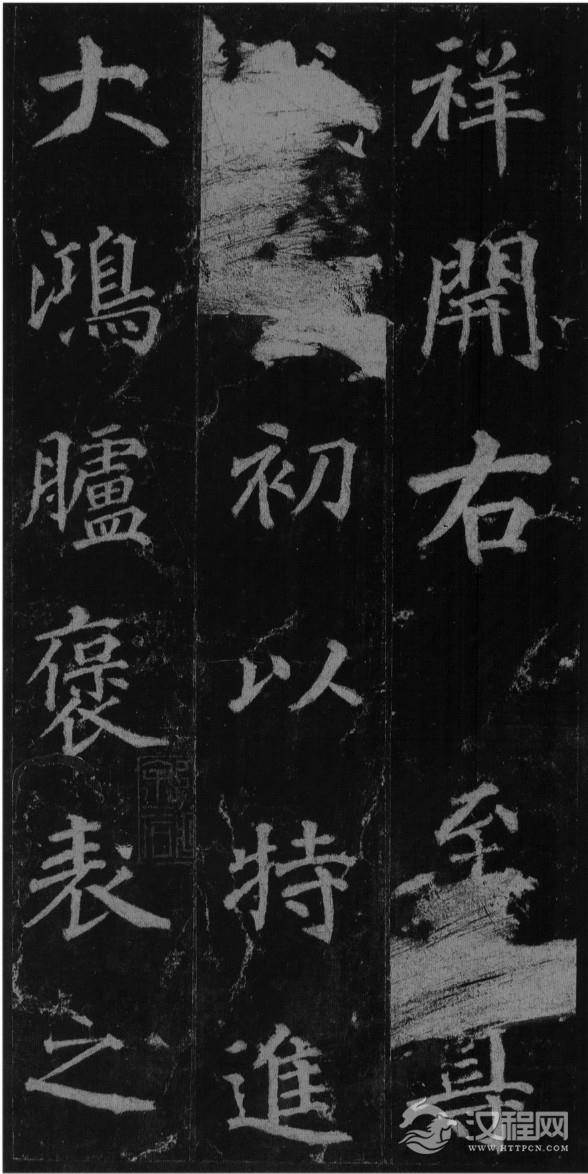 祥開右至真
初以特進
大鴻臚褒表之
汉程网
WWW.HTTPCN.COM